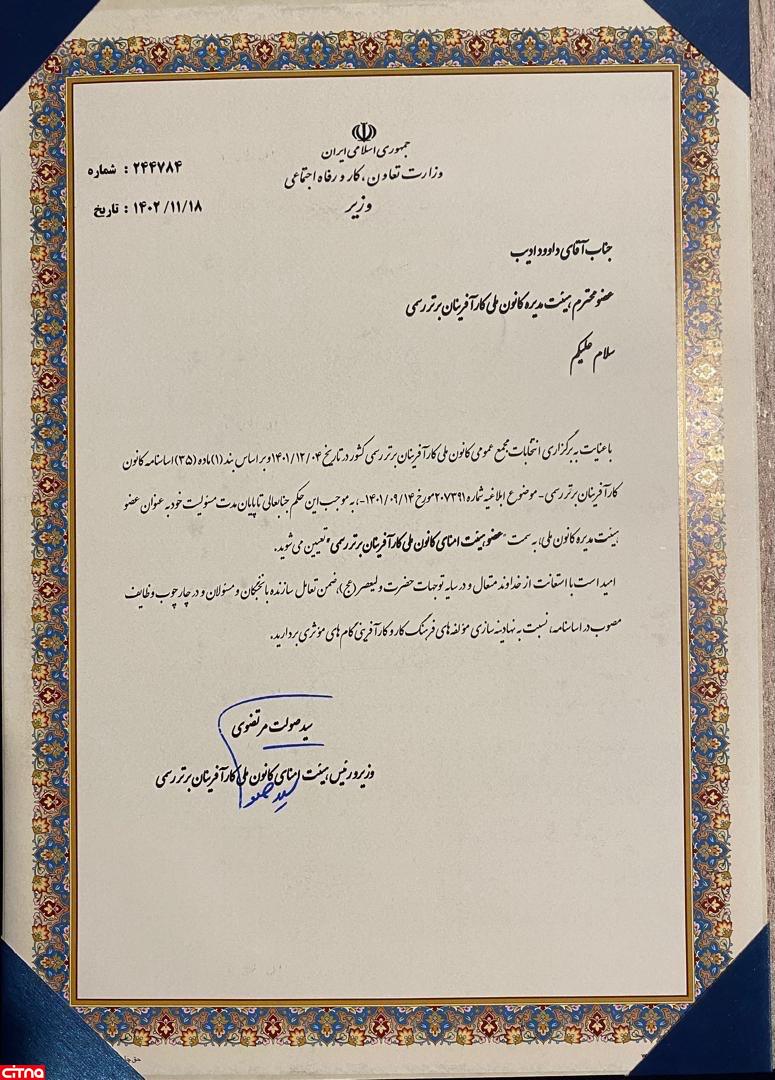 جمهوری اسلامی ایران
وزارت تعاون، کار و رفاه اجتماعی
وزیر
شماره : ۲۴۴۷۸۴
تاریخ : ۱۴۰۲/۱۱/۱۸
جناب آقای داوود ادیب
عضو محترم هیئت مدیره کانون ملی کارآفرینان برتر رسمی
سلام علیکم
با عنایت به برگزاری انتخابات مجمع عمومی کانون ملی کارآفرینان برتر رسمی کشور در تاریخ ۱۴۰۱/۱۲/۰۴ و بر اساس بند (۱) ماده (۳۵) اساسنامه کانون
کارآفرینان برتر رسمی - موضوع ابلاغیه شماره ۲۰۷۳۹۱ مورخ ۱۴۰۱/۰۹/۱۴-، به موجب این حکم جنابعالی تا پایان مدت مسئولیت خود به عنوان عضو
هیئت مدیره کانون ملی، به سمت "عضو هیئت امنای کانون ملی کارآفرینان برتر رسمی" تعیین می شوید.
امید است با استعانت از خداوند متعال و در سایه توجهات حضرت ولیعصر (عج)، ضمن تعامل سازنده با نخبگان و مسئولان و در چارچوب وظایف
مصوب در اساسنامه، نسبت به نهادینه سازی مؤلفه های فرهنگ کار و کارآفرینی گام های مؤثری بردارید.
سید صولت مرتضوی
وزیر و رئیس هیئت امنای کانون ملی کارآفرینان برتر رسمی
citna